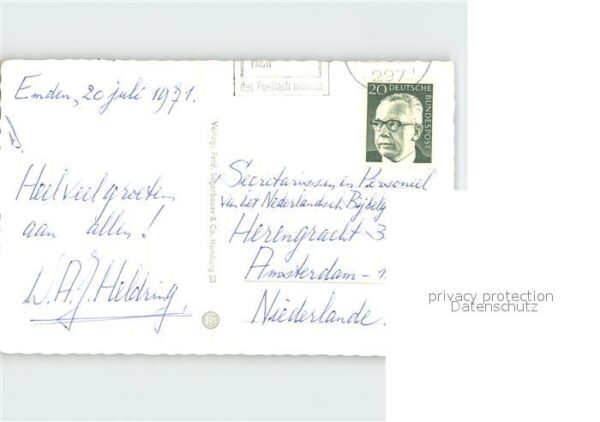 Emden, 20 juli 1971.
Heel veel groeten
aan allen!
W.A.J. Heldring,
Verlag Ferd. Lagerbauer & Co. Hamburg 33
das Postfach
297
20 DEUTSCHE
BUNDESPOST
Secretarissen en Personeel
van het Nederlandsch Bijbelg
Herengracht 3
Amsterdam -
Niederlande.
privacy protection
Datenschutz